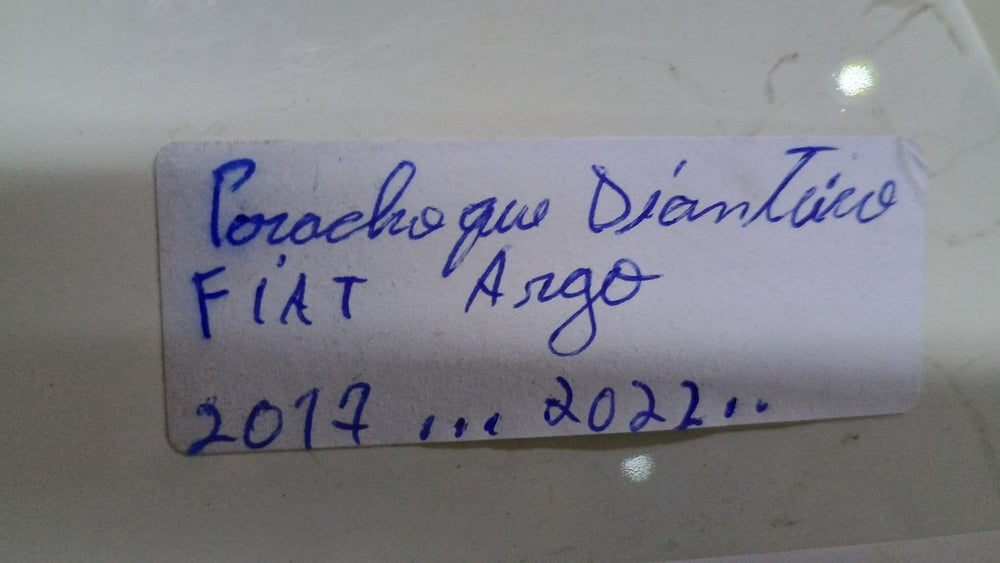 Parachoque Diánteiro
FIAT Argo
2017 ... 2022..